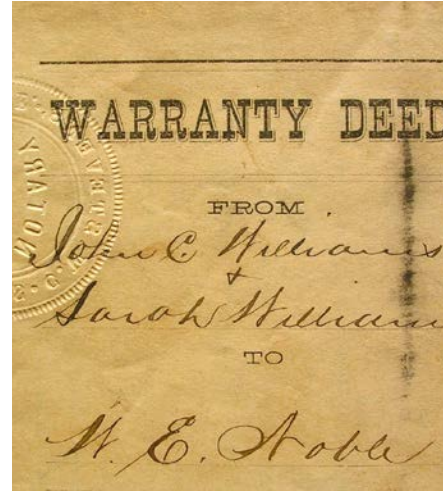 WARRANTY DEED
FROM
John C Williams
&
Sarah William
TO
W. E. Noble
NOTARY